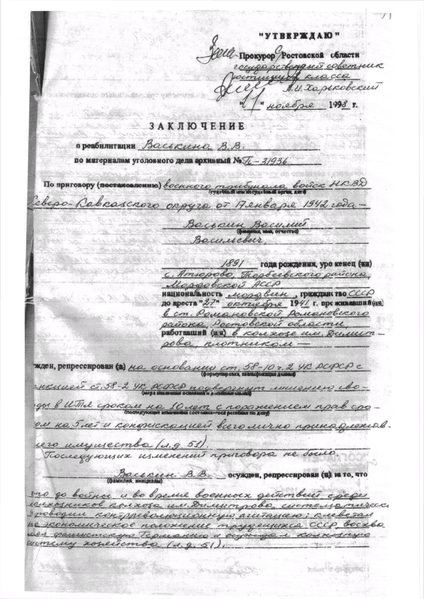 "УТВЕРЖДАЮ"
Прокурор Ростовской области
государственный советник
юстиции класса
А.И. Харьковский
" 11 " ноября 1998 г.
ЗАКЛЮЧЕНИЕ
о реабилитации Васькина В.В.
по материалам уголовного дела архивный № П-31956
По приговору (постановлению) военного трибунала войск НКВД
Северо-Кавказского округа от 17 января 1942 года —
Васькин Василий
(фамилия, имя, отчество)
Васильевич
1891 года рождения, уро кенец (ка)
с. Атюрово, Торбеевского района,
Мордовской АССР
национальность мордвин, гражданство СССР
до ареста "27" октября 1941 г. проживавший
в ст. Романовской, Романовского
района, Ростовской области
работавший (ая) в колхозе им. Димит-
рова, плотником —
жден, репрессирован (а) на основании ст. 58-10 ч. 2 УК РСФСР с
ст. 58-2 УК РСФСР подвергнут лишению сво-
ды в ИТЛ сроком на 10 лет с поражением прав сро-
ом на 5 лет и конфискацией всего лично принадлежав-
его имущества (л.д. 51).
Последующих изменений приговора не было.
Васькин В.В. осужден, репрессирован (а) за то, что
(фамилия, инициалы)
то до войны и во время военных действий среди
колхозников колхоза им. Димитрова систематически
проводил контрреволюционную агитацию: клеветал
на экономическое положение трудящихся СССР, восхва-
лял фашистскую Германию и колхозную
систему хозяйства (л.д. 51).